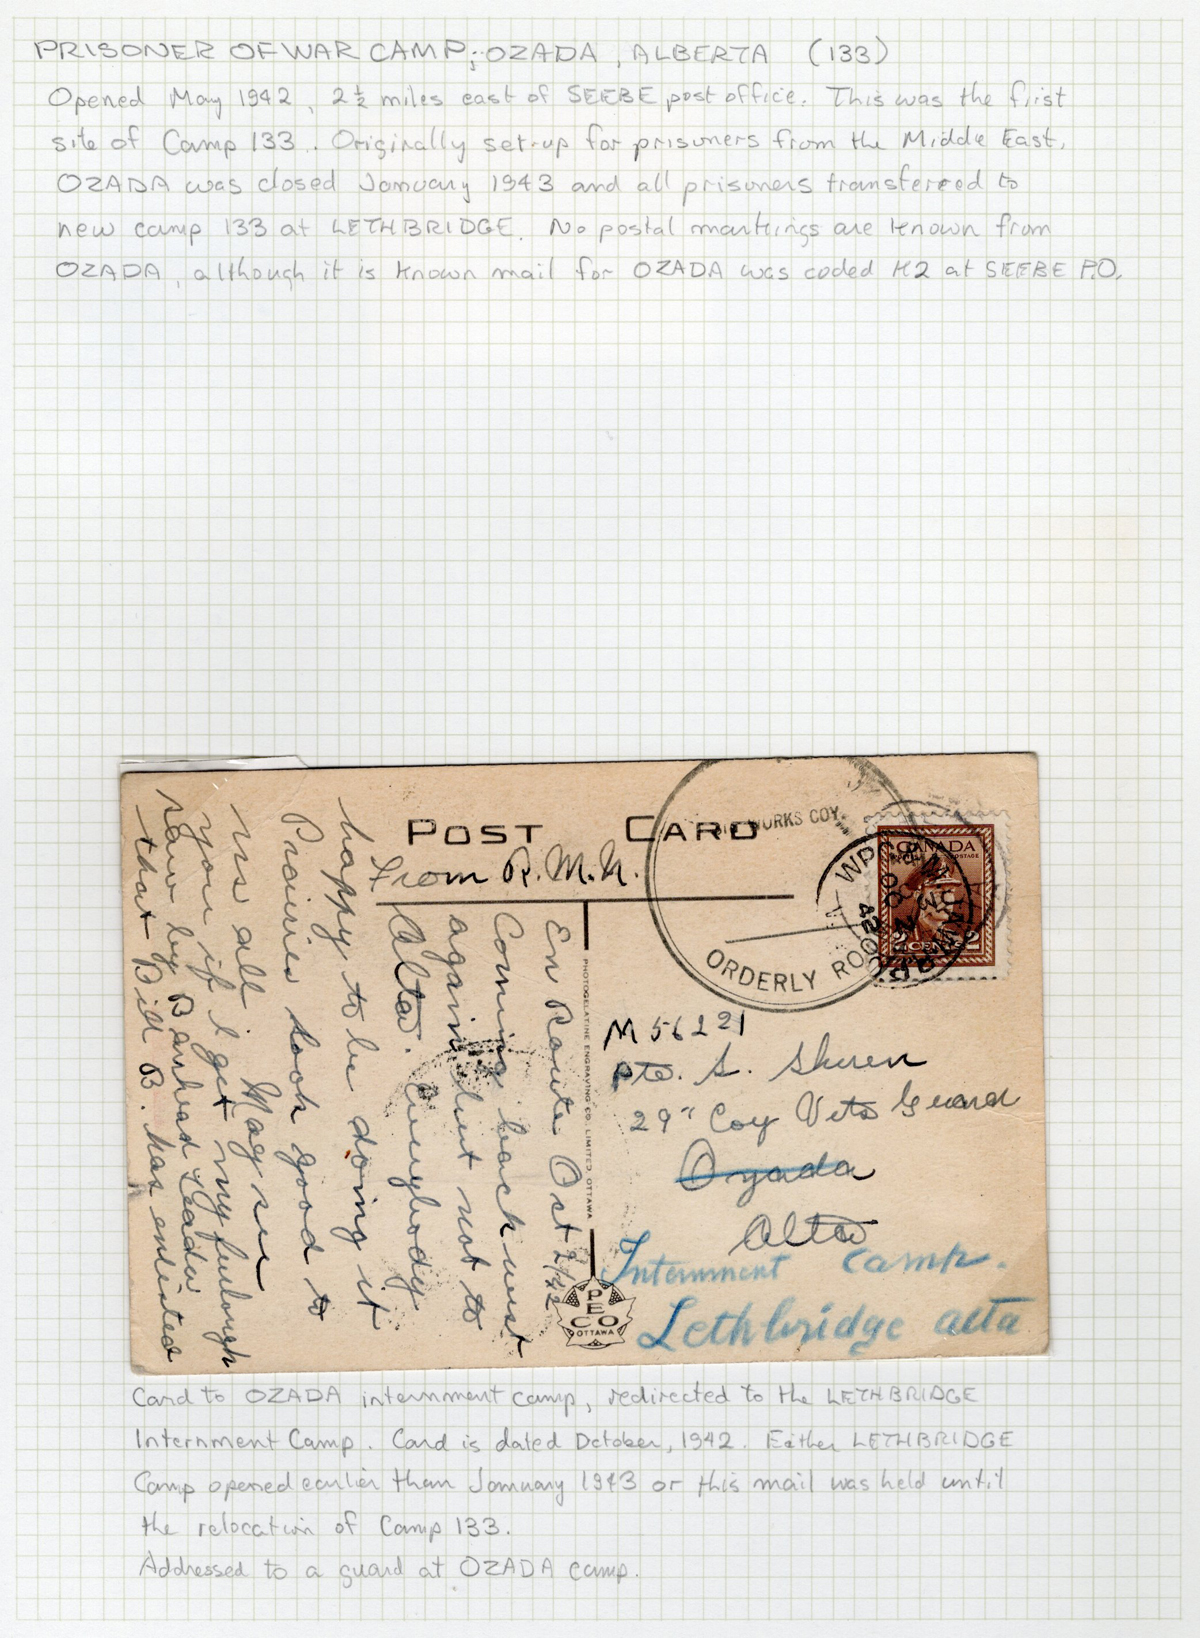 PRISONER OF WAR CAMP; OZADA, ALBERTA (133)
Opened May 1942, 2½ miles east of SEEBE post office. This was the first
site of Camp 133. Originally set-up for prisoners from the Middle East,
OZADA was closed January 1943 and all prisoners transferred to
new camp 133 at LETHBRIDGE. No postal markings are known from
OZADA, although it is known mail for OZADA was coded H2 at SEEBE P.O.
POST CARD
From R. M. N.
WORKS COY.
ORDERLY ROOM
CANADA
POSTAGE
2 CENTS 2
En Route Oct 2/42
Coming back west
again but not to
Alta. Everybody
happy to be doing it
Prairies look good to
us all May see
you if I get my furlough
saw by Banhead Leader
that Bill B. has enlisted
PHOTOGELATINE ENGRAVING CO. LIMITED, OTTAWA
PECO
OTTAWA
M 56221
Pte. S. Shuren
29" Coy Vets Guard
Ozada
Alta
Internment camp.
Lethbridge alta
Card to OZADA internment camp, redirected to the LETHBRIDGE
Internment Camp. Card is dated October, 1942. Either LETHBRIDGE
Camp opened earlier than January 1943 or this mail was held until
the relocation of Camp 133.
Addressed to a guard at OZADA camp.